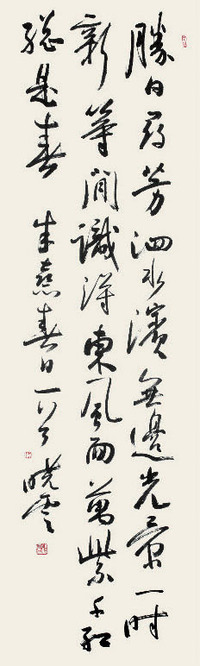 勝日尋芳泗水濱無邊光景一時
新等間識得東風面萬紫千紅
總是春 朱熹春日一首 曉雲